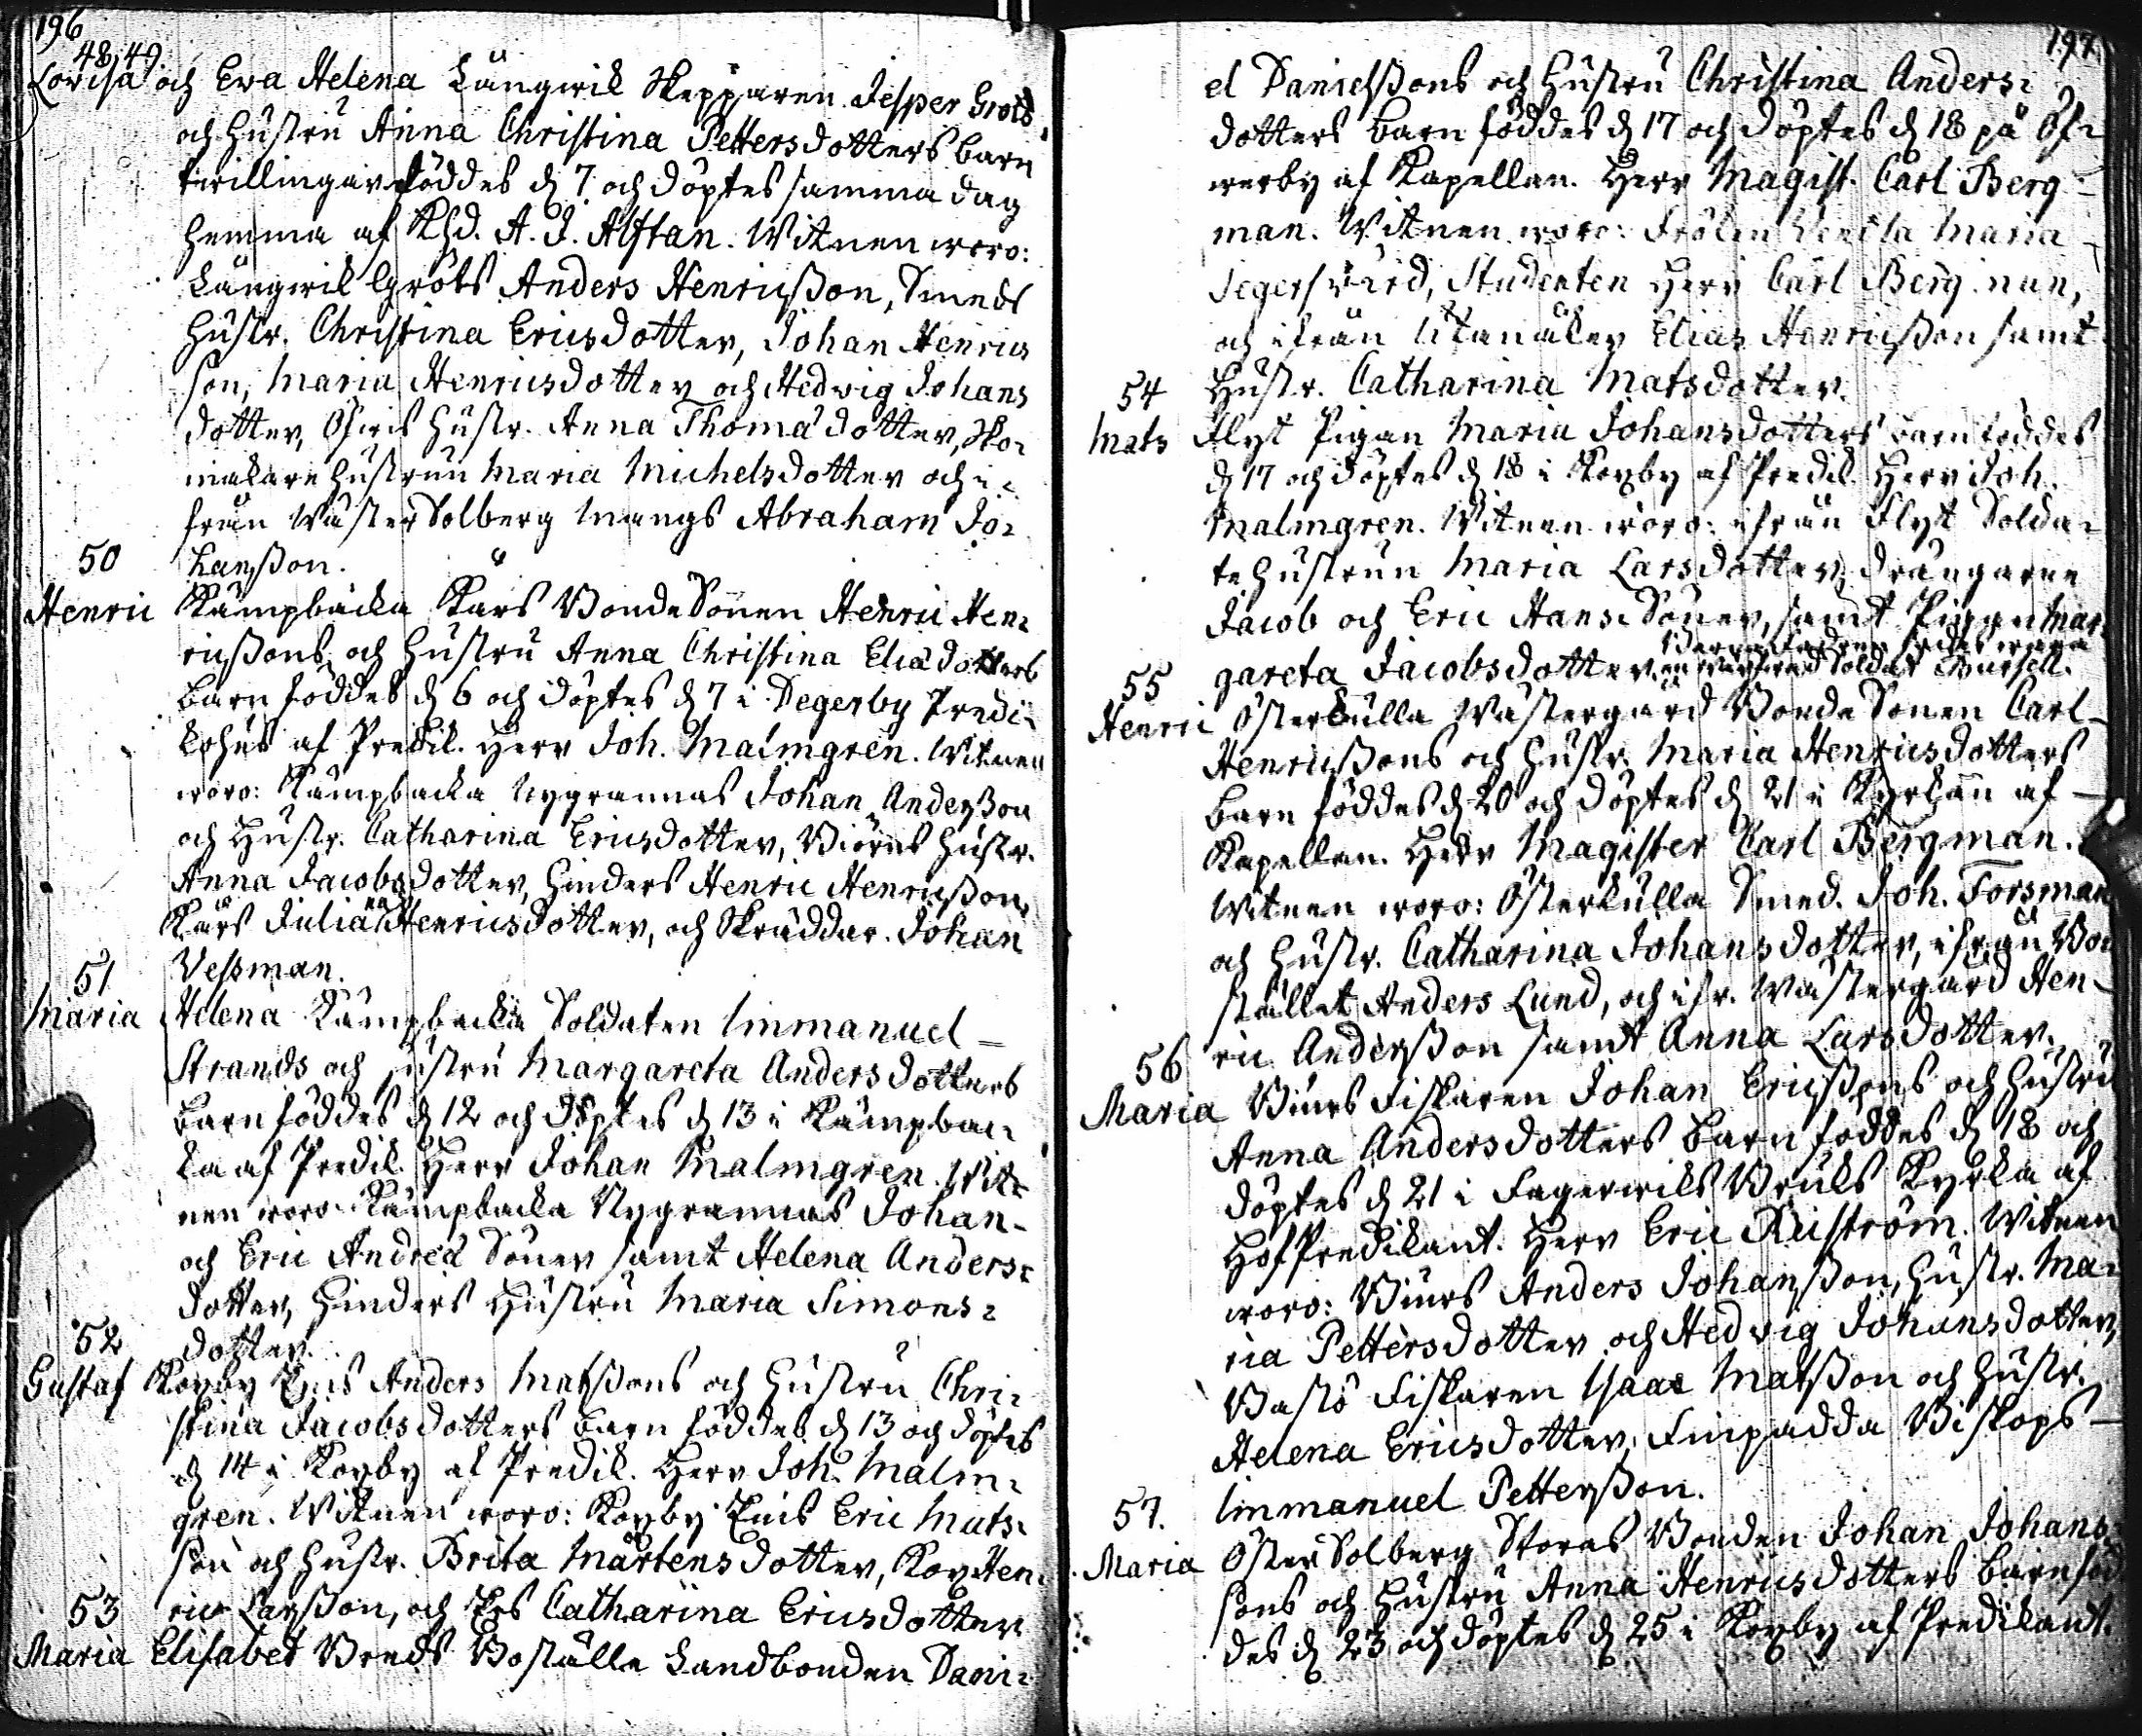 196
48, 49.
Lovisa och Eva Helena Långwik Skepparen Jesper Gröts
och Hustru Anna Christina Pettersdotters barn
twillingar föddes d. 7 och döptes samma dag
hemma af Khd. A. J. Alftan. Witnen woro:
Långwik Gröts Anders Henricßon, Smeds
Hustr. Christina Ericsdotter, Johan Henrics
son, Maria Henricsdotter och Hedvig Johans
dotter, Hustr. Anna Thomädotter, Sko-
makare Hustrun Maria Michelsdotter och i-
från Wäster Solberg Mangs Abraham Jo-
hanßon.
50
Henric Kämpbacka Kärs BondeSonen Henric Hen-
ricßons och Hustru Anna Christina Eliædotters
barn föddes d. 6 och döptes d. 7 i Degerby Predi-
kohus af Predik. Herr Joh. Malmgren. Witnen
woro: Kämpbacka Nygrannas Johan Anderßon
och Hustr. Catharina Ericsdotter, Biörns Hustr.
Anna Jacobsdotter, Hinders Henric Henricßon,
Kärs Julianna Henricsdotter, och Skräddar. Johan
Veßman.
51
Maria Helena Kämpbacka Soldaten Immanuel
Strands och Hustru Margareta Andersdotters
barn föddes d. 12 och döptes d. 13 i Kämpbac-
ka af Predik. Herr Johan Malmgren. Wit-
nen woro: Kämpbacka Nygrannas Johan
och Eric Andreæ Söner samt Helena Anders-
dotter, Hinders Hustru Maria Simons-
dotter.
52
Gustaf Koxby Anders Matsßons och Hustru Chri-
stina Jacobsdotters barn föddes d. 13 och döptes
d. 14 i Koxby af Predik. Herr Joh. Malm-
gren. Witnen woro: Koxby Eric Mats-
son och Hustr. Brita Mårtensdotter, Kox Hen-
ric Larsßon, och Catharina Ericsdotter
53
Maria Elisabet Breds Boställe Landbonden Dani-
197.
el Danielsßons och Hustru Christina Anders-
dotters barn föddes d. 17 och döptes d. 18 på Öf-
werby af Kapellan. Herr Magist. Carl Berg-
man. Witnen woro: Fröken Vendla Maria
Segersvärd, Studenten Herr Carl Bergman,
och ifrån Utanåker Elias Henricßon samt
Hustr. Catharina Matsdotter.
54
Mats Flyt Pigan Maria Johansdotters barn föddes
d. 17 och döptes d. 18 i Koxby af Predik. Herr Joh.
Malmgren. Witnen woro: ifrån Flyt Solda-
te Hustrun Maria Larsdotter, drängarne
Jacob och Eric Hans Söner, samt Pigan Mar-
gareta Jacobsdotter. soldat
55
Henric Österkulla Wästergård BondeSonen Carl
Henricßons och Hustr. Maria Henricsdotters
barn föddes d. 20 och döptes d. 21 i Kyrkan af
Kapellan. Herr Magister Carl Bergman.
Witnen woro: Österkulla Smed. Joh. Forsman
och Hustr. Catharina Johansdotter, ifrån Bo-
stället Anders Lund, och ifr. Wästergård Hen-
ric Anderßon samt Anna Larsdotter.
56
Maria Biurs Fiskaren Johan Ericßons och Hustru
Anna Andersdotters barn föddes d. 18 och
döptes d. 21 i Fagerwiks Bruks Kyrka af
HofPredikant. Herr Eric Reiström. Witnen
woro: Biurs Anders Johansßon, Hustr. Ma-
ria Pettersdotter och Hedvig Johansdotter,
Bastö Fiskaren Isaac Matsßon och Hustr.
Helena Ericsdotter, Finpadda Biskops
Immanuel Petterßon.
57.
Maria Öster Solberg Storas Bonden Johan Johans-
sons och Hustru Anna Henricsdotters barn föd-
des d. 23 och döptes d. 25 i Koxby af Predikant.